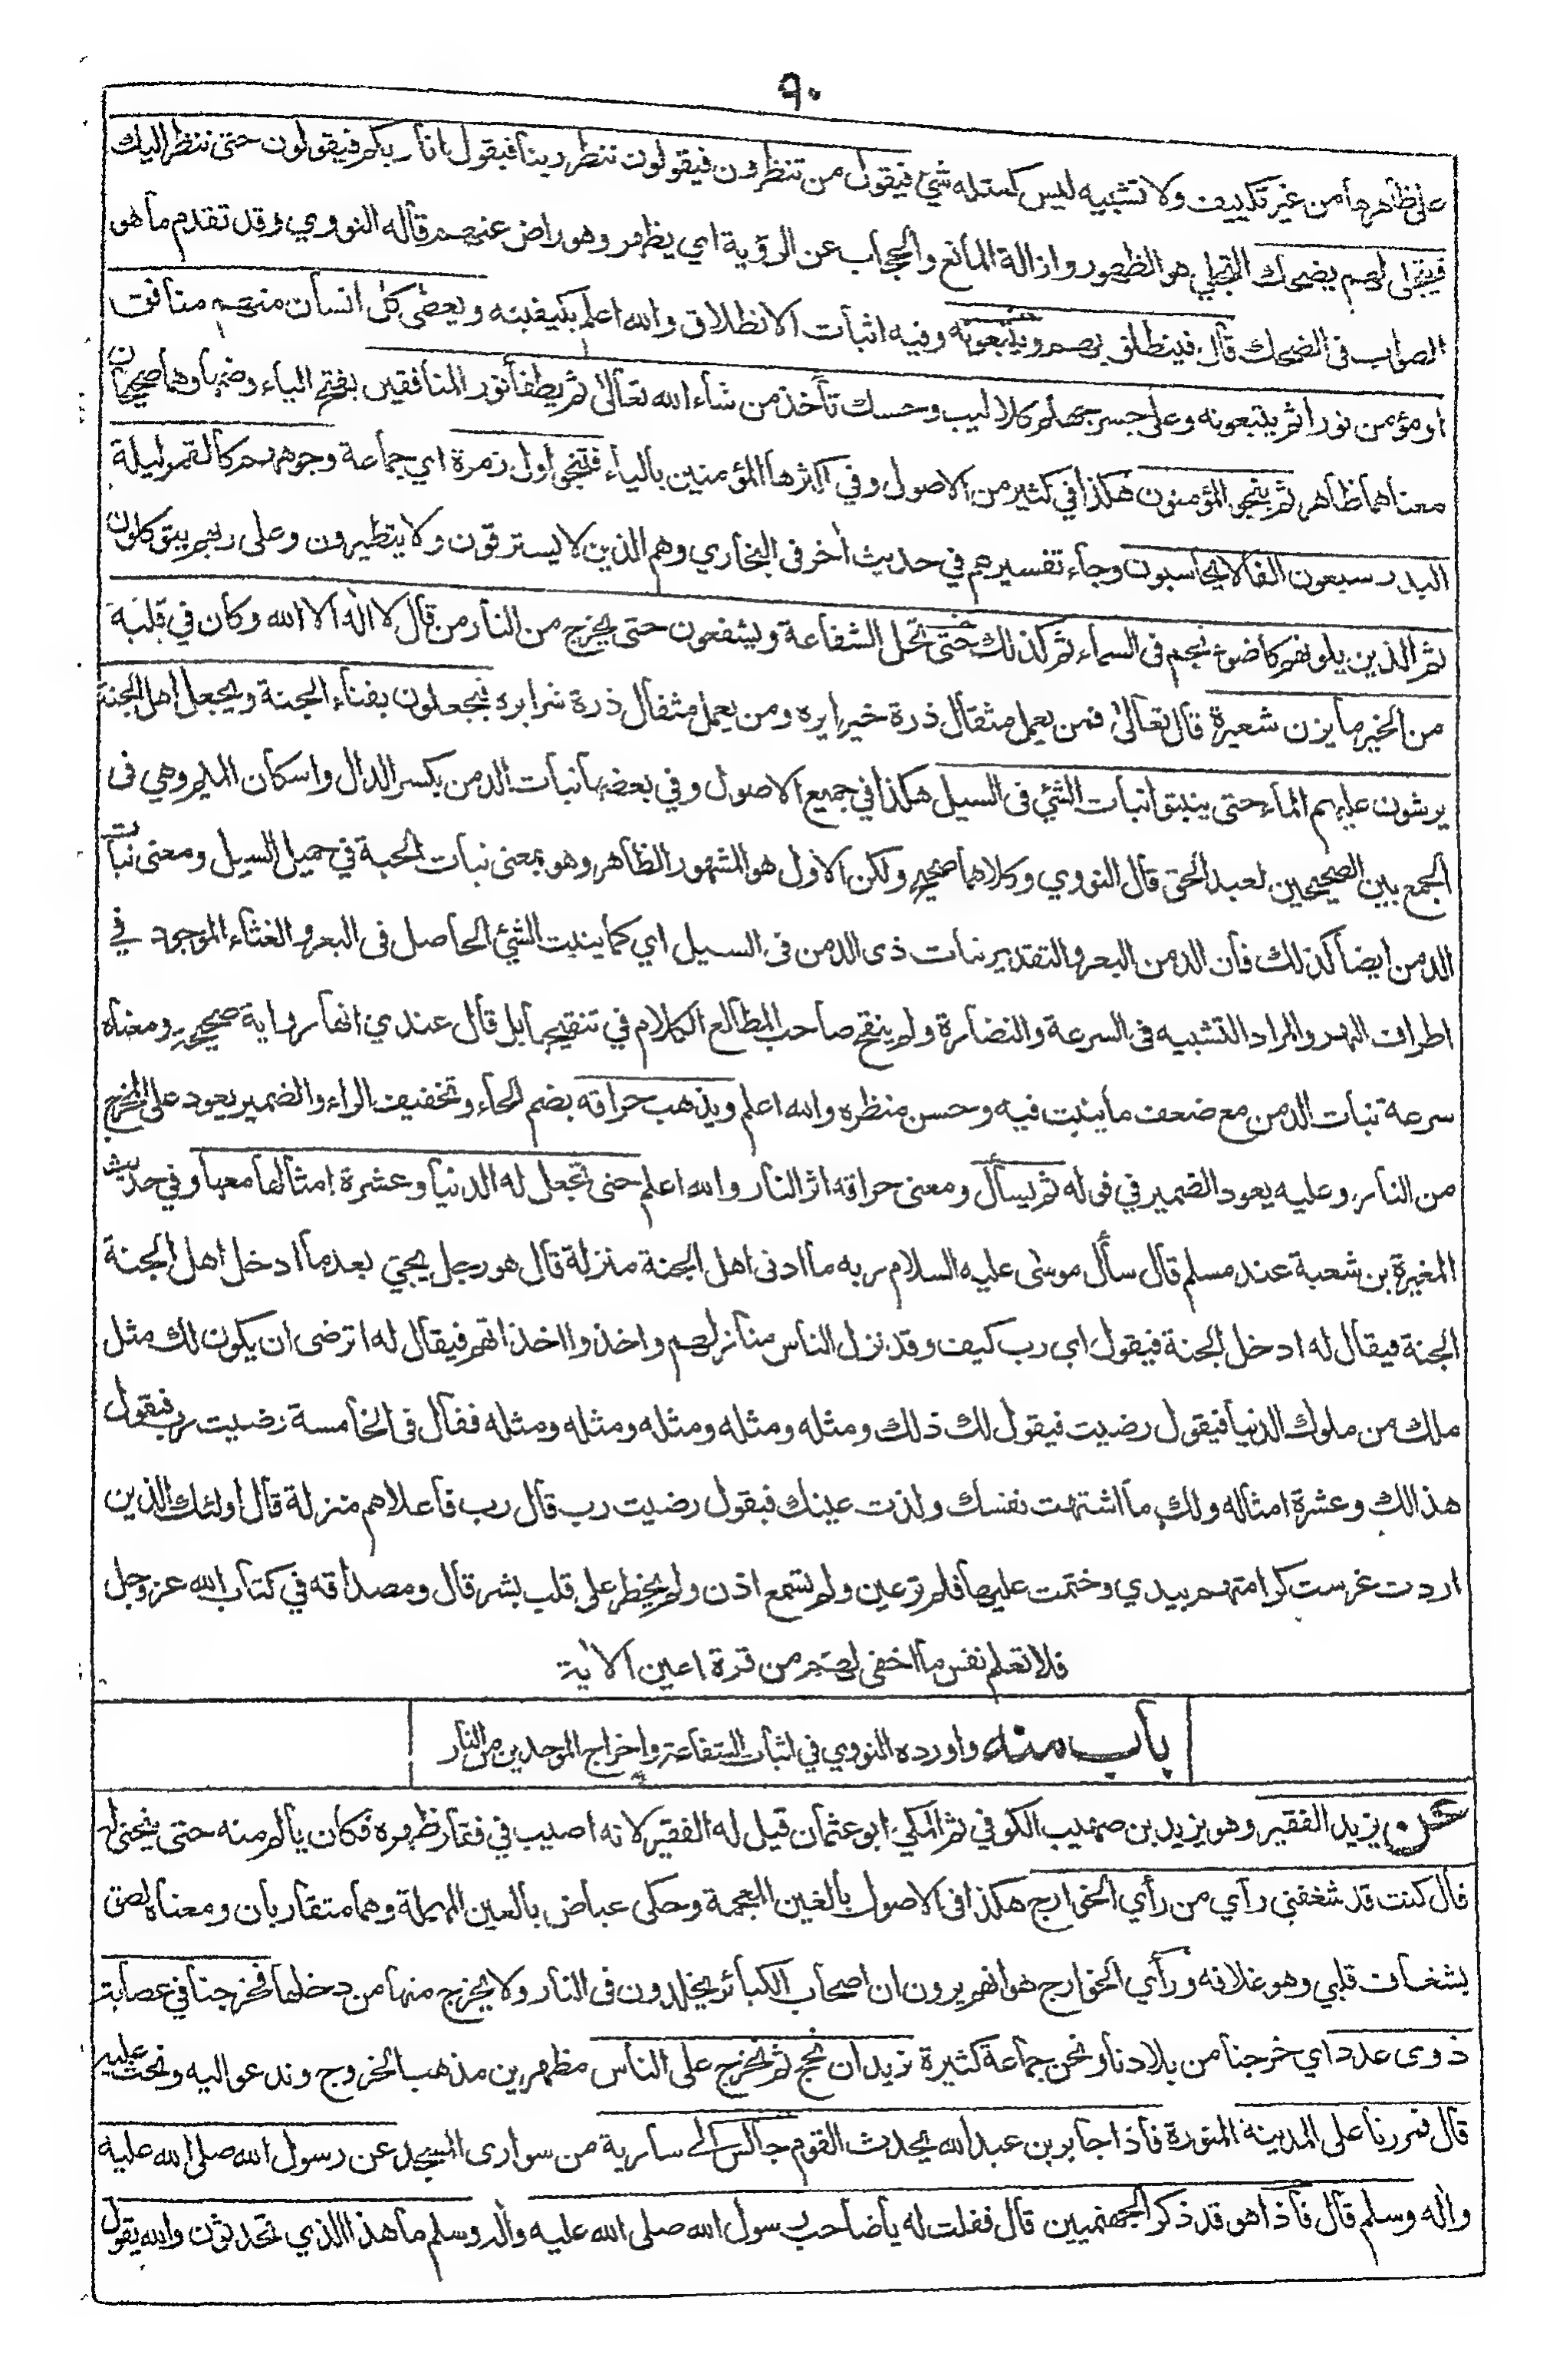 ٩٠
على ظاهرها من غير تكييف ولا تشبيه ليس كمثله شئ فيقول من تنظرون فيقولون ننظر ربنا فيقول انا ربكم فيقولون حتى ننظر اليك
فيتجلى لهم يضحك التجلي هو الظهور وازالة المانع والحجاب عن الرؤية اي يظهر وهو راض عنهم قاله النووي وقد تقدم ما هو
الصواب فى الضحك قال فينطلق بهم ويتبعونه وفيه اثبات الانطلاق والله اعلم بكيفيته ويعطى كل انسان منهم منافق
او مؤمن نورا ثم يتبعونه وعلى جسر جهنم كلاليب وحسك تأخذ من شاء الله تعالى ثم يطفأ نور المنافقين بفتح الياء وضمها وهما صحيحان
معناهما ظاهر ثم ينجو المؤمنون هكذا في كثير من الاصول وفي اكثرها المؤمنين بالياء فتنجو اول زمرة اي جماعة وجوههم كالقمر ليلة
البدر سبعون الفا لا يحاسبون وجاء تفسيرهم في حديث اخر فى البخاري وهم الذين لا يسترقون ولا يتطيرون وعلى ربهم يتوكلون
ثم الذين يلونهم كاضوء نجم فى السماء ثم كذلك حتى تحل الشفاعة ويشفعون حتى يخرج من النار من قال لا اله الا الله وكان في قلبه
من الخير ما يزن شعيرة قال تعالى فمن يعمل مثقال ذرة خيرا يره ومن يعمل مثقال ذرة شرا يره فيجعلون بفناء الجنة ويجعل اهل الجنة
يرشون عليهم الماء حتى ينبتوا نبات الشئ فى السيل هكذا في جميع الاصول وفي بعضها نبات الدمن بكسر الدال واسكان الميم وهي فى
الجمع بين الصحيحين لعبد الحق قال النووي وكلاهما صحيح ولكن الاول هو المشهور الظاهر وهو بمعنى نبات الحبة في حميل السيل ومعنى نبات
الدمن ايضا كذلك فان الدمن البعر والتقدير نبات ذى الدمن فى السيل اي كما ينبت الشئ الحاصل فى البعر والغثاء الموجود في
اطراف النهر والمراد التشبيه فى السرعة والنضارة ولم ينقح صاحب المطالع الكلام في تنقيحها بل قال عندي انها رواية صحيحة ومعناه
سرعة نبات الدمن مع ضعف ما ينبت فيه وحسن منظره والله اعلم ويذهب حراقه بضم الحاء وتخفيف الراء والضمير يعود على المخرج
من النار وعليه يعود الضمير في قوله ثم يسأل ومعنى حراقه اثر النار والله اعلم حتى تجعل له الدنيا وعشرة امثالها معها وفي حديث
المغيرة بن شعبة عند مسلم قال سأل موسى عليه السلام ربه ما ادنى اهل الجنة منزلة قال هو رجل يجئ بعد ما ادخل اهل الجنة
الجنة فيقال له ادخل الجنة فيقول اي رب كيف وقد نزل الناس منازلهم واخذوا اخذاتهم فيقال له اترضى ان يكون لك مثل
ملك من ملوك الدنيا فيقول رضيت فيقول لك ذلك ومثله ومثله ومثله ومثله ومثله فقال فى الخامسة رضيت رب فيقول
هذا لك وعشرة امثاله ولك ما اشتهت نفسك ولذت عينك فيقول رضيت رب قال رب فاعلاهم منزلة قال اولئك الذين
اردت غرست كرامتهم بيدي وختمت عليها فلم تر عين ولم تسمع اذن ولم يخطر على قلب بشر قال ومصداقه في كتاب الله عز وجل
فلا تعلم نفس ما اخفى لهم من قرة اعين الاية
باب منه واورده النووي في اثبات الشفاعة واخراج الموحدين من النار
عن يزيد الفقير وهو يزيد بن صهيب الكوفي ثم المكي ابو عثمان قيل له الفقير لانه اصيب في فقار ظهره فكان يألم منه حتى ينحني له
قال كنت قد شغفني رأي من رأي الخوارج هكذا فى الاصول بالغين المعجمة وحكى عياض بالعين المهملة وهما متقاربان ومعناه لصق
بشغاف قلبي وهو غلافه ورأي الخوارج هو انهم يرون ان اصحاب الكبائر يخلدون فى النار ولا يخرج منها من دخلها فخرجنا في عصابة
ذوى عدد اي خرجنا من بلادنا ونحن جماعة كثيرة نريد ان نحج ثم نخرج على الناس مظهرين مذهب الخروج وندعو اليه ونحث عليه
قال فمررنا على المدينة المنورة فاذا جابر بن عبد الله يحدث القوم جالس الى سارية من سوارى المسجد عن رسول الله صلى الله عليه
واله وسلم قال فاذا هو قد ذكر الجهنميين قال فقلت له يا صاحب رسول الله صلى الله عليه واله وسلم ما هذا الذي تحدثون والله يقول